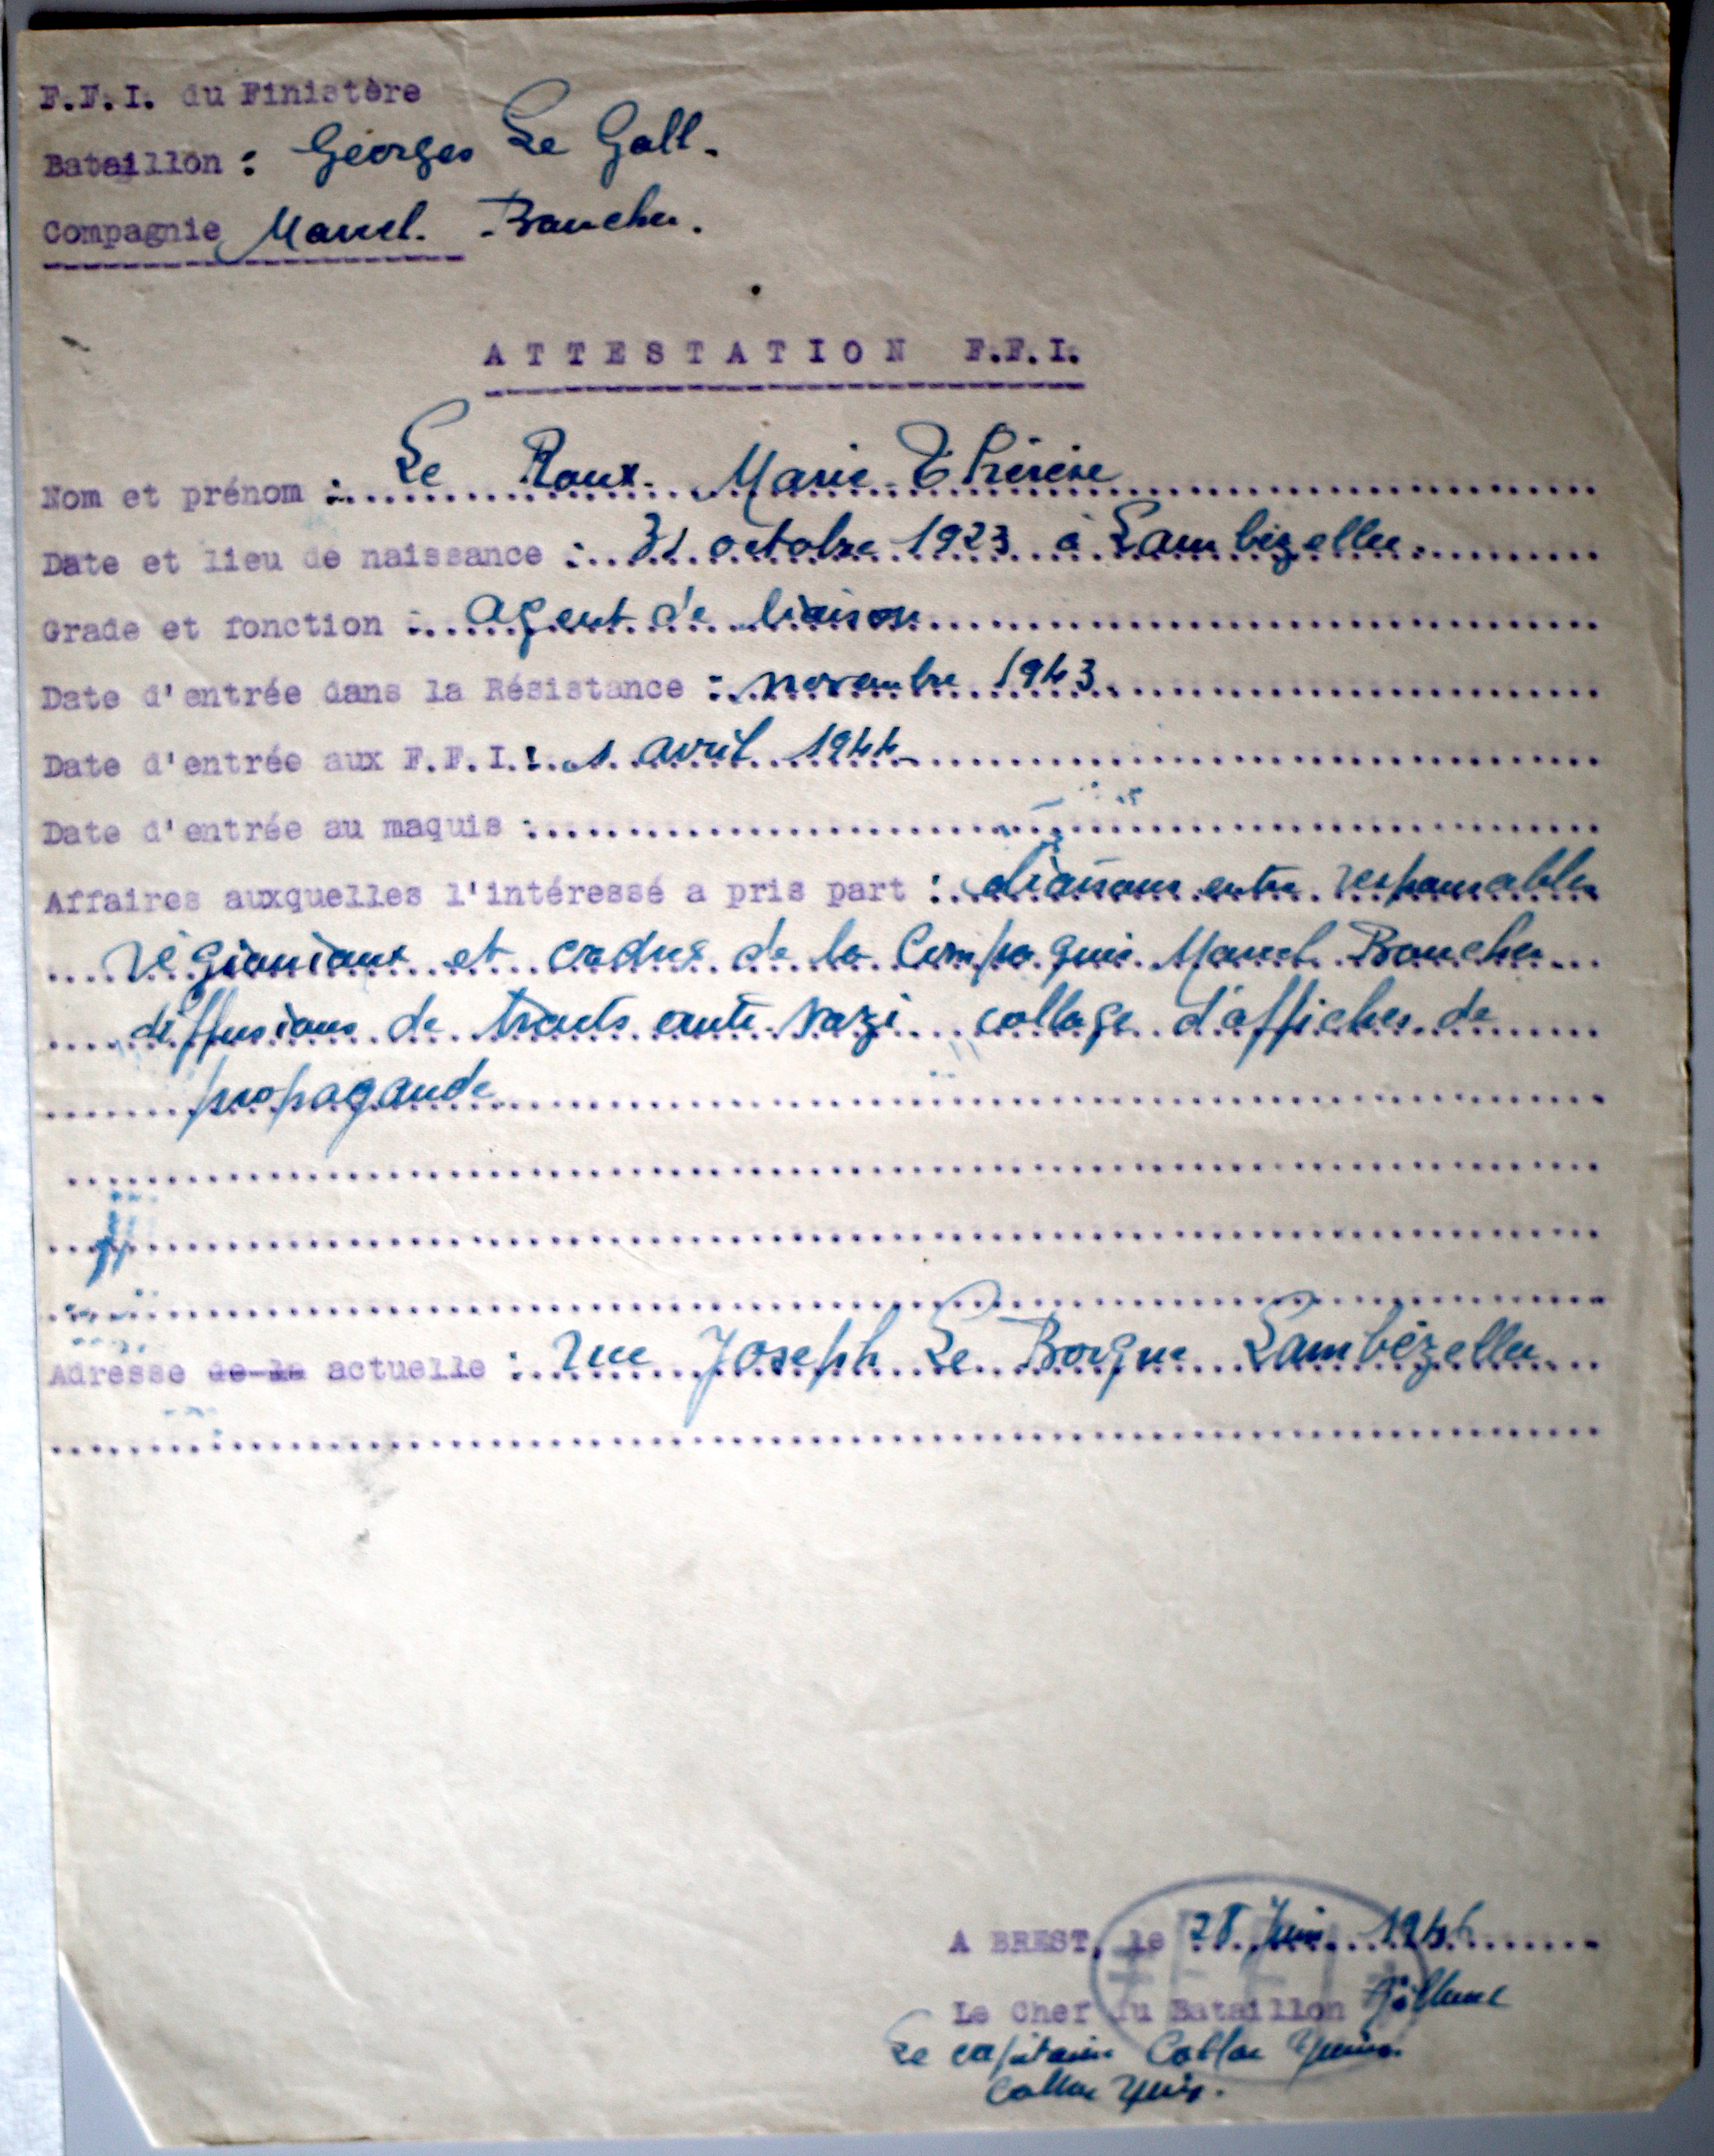 F.F.I. du Finistère
Bataillon : Georges Le Gall.
Compagnie Marcel. Boucher.
ATTESTATION F.F.I.
Nom et prénom : Le Roux Marie-Thérèse
Date et lieu de naissance : 31 octobre 1923 à Lambézellec
Grade et fonction : Agent de liaison
Date d'entrée dans la Résistance : novembre 1943
Date d'entrée aux F.F.I. : 1 avril 1944
Date d'entrée au maquis :
Affaires auxquelles l'intéressé a pris part : liaisons entre responsables
régioniaux et cadres de la Compagnie Marcel Boucher
diffusions de tracts anti-nazi collage d'affiches de
propagande
Adresse de la actuelle : rue Joseph Le Borgne Lambézellec
A BREST, le 28 Juin
Le Chef du Bataillon
Le capitaine